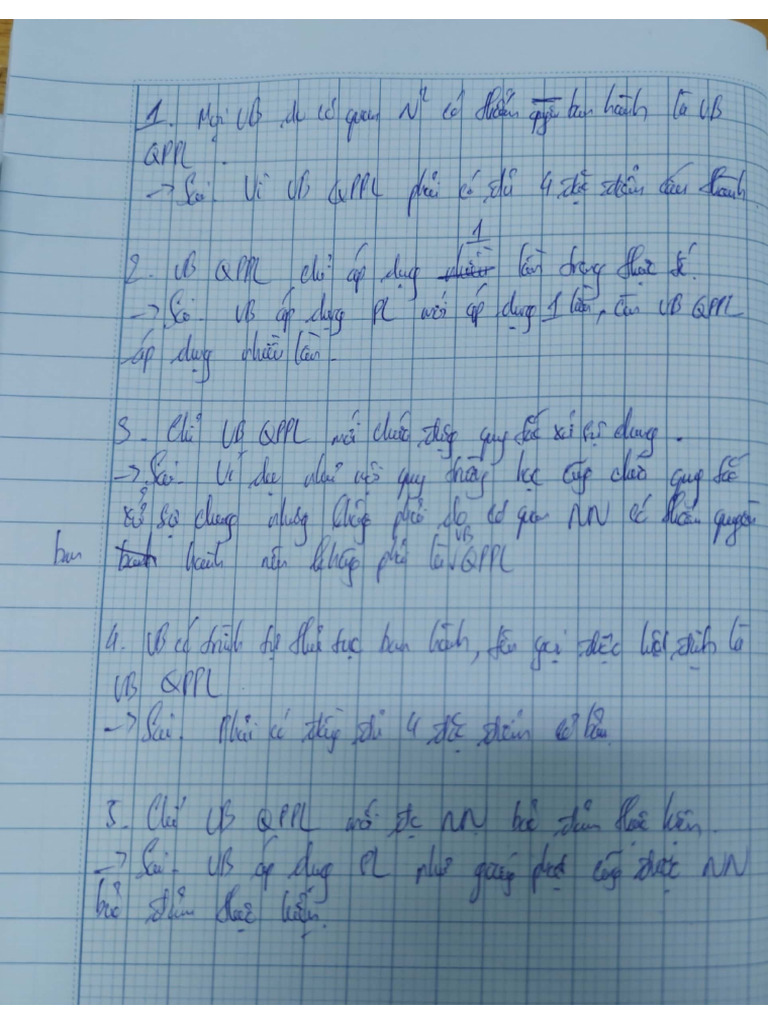 1. Mọi VB do cơ quan N² có thẩm quyền ban hành là VB
QPPL.
→ Sai. Vì VB QPPL phải có đủ 4 đặc điểm cấu thành
2. VB QPPL chỉ áp dụng 1 lần trong thực tế.
→ Sai. VB áp dụng PL mới áp dụng 1 lần, còn VB QPPL
áp dụng nhiều lần.
3. Chỉ VB QPPL mới chứa đựng quy tắc xử sự chung.
→ Sai. Ví dụ như nội quy trường học cũng chứa quy tắc
xử sự chung nhưng không phải do cơ quan NN có thẩm quyền
ban hành nên không phải là VB QPPL
4. VB có trình tự thủ tục ban hành, tên gọi được luật định là
VB QPPL.
→ Sai. Phải có đầy đủ 4 đặc điểm cơ bản.
5. Chỉ VB QPPL mới đc NN bảo đảm thực hiện.
→ Sai. VB áp dụng PL như giấy phạt cũng được NN
bảo đảm thực hiện.